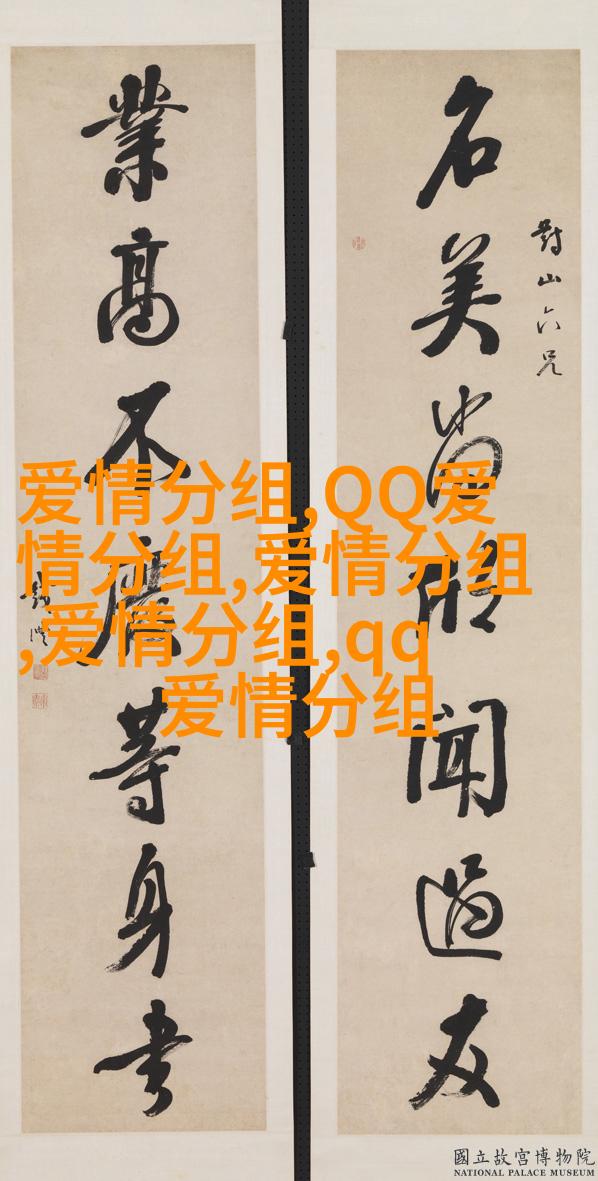 名美尚欣聞過友
對山六兄
業高不廢等身書
爱情分组,QQ爱
情分组,爱情分组
,爱情分组,qq
爱情分组
國立故宮博物院
NATIONAL PALACE MUSEUM